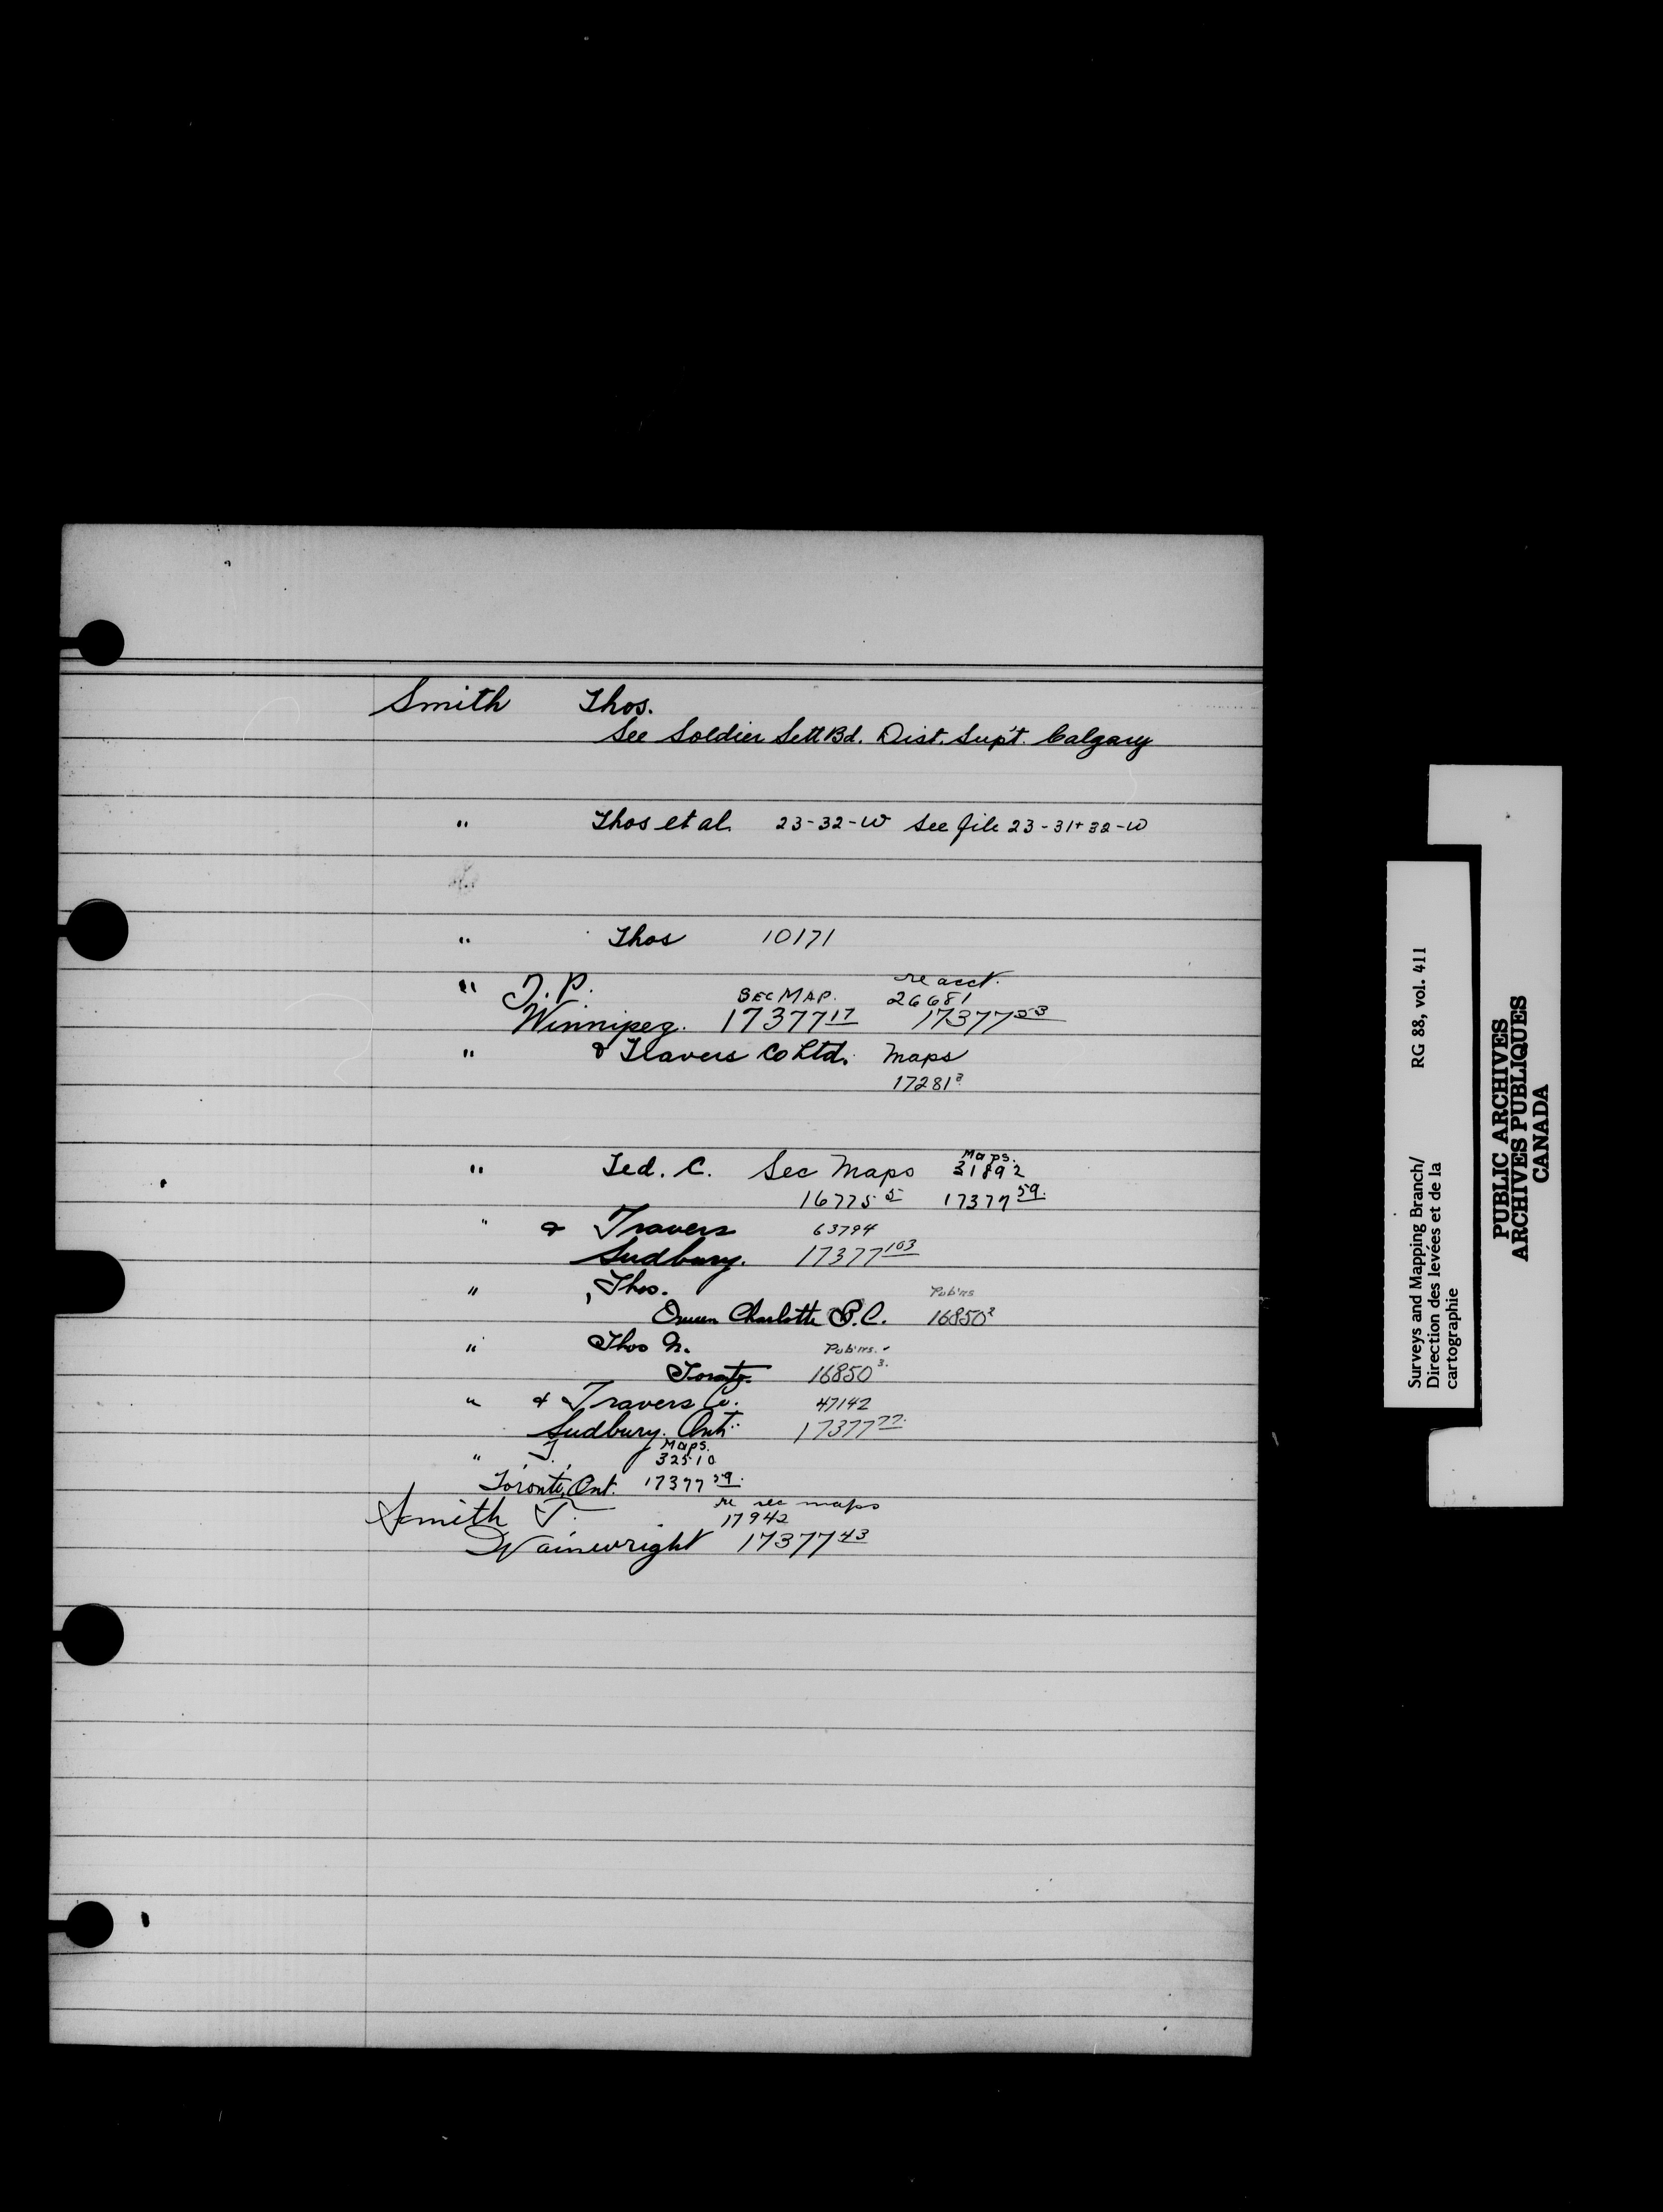 Smith Thos.
See Soldier Sett Bd. Dist. Sup't. Calgary
" Thos et al. 23-32-W See file 23-31+32-W
" Thos 10171
" T. P. SEC MAP. re acct. 26681
Winnipeg. 17377 17 17377 53
" & Travers Co Ltd. Maps
17281 3
" Ted. C. Sec Maps Maps. 31892
16775 5 17377 59.
" & Travers 63794
Sudbury. 17377 103
" , Thos. Pub'ns
Queen Charlotte B.C. 16850 2
" Thos N. Pub'ns.
Toronto. 16850 3.
" & Travers Co. 47142
Sudbury. Ont. 17377 77.
" T. Maps. 32510
Toronto, Ont. 17377 59.
Smith T. re sec maps
17942
Wainwright 17377 43
Surveys and Mapping Branch/ RG 88, vol. 411
Direction des levées et de la
cartographie
PUBLIC ARCHIVES
ARCHIVES PUBLIQUES
CANADA